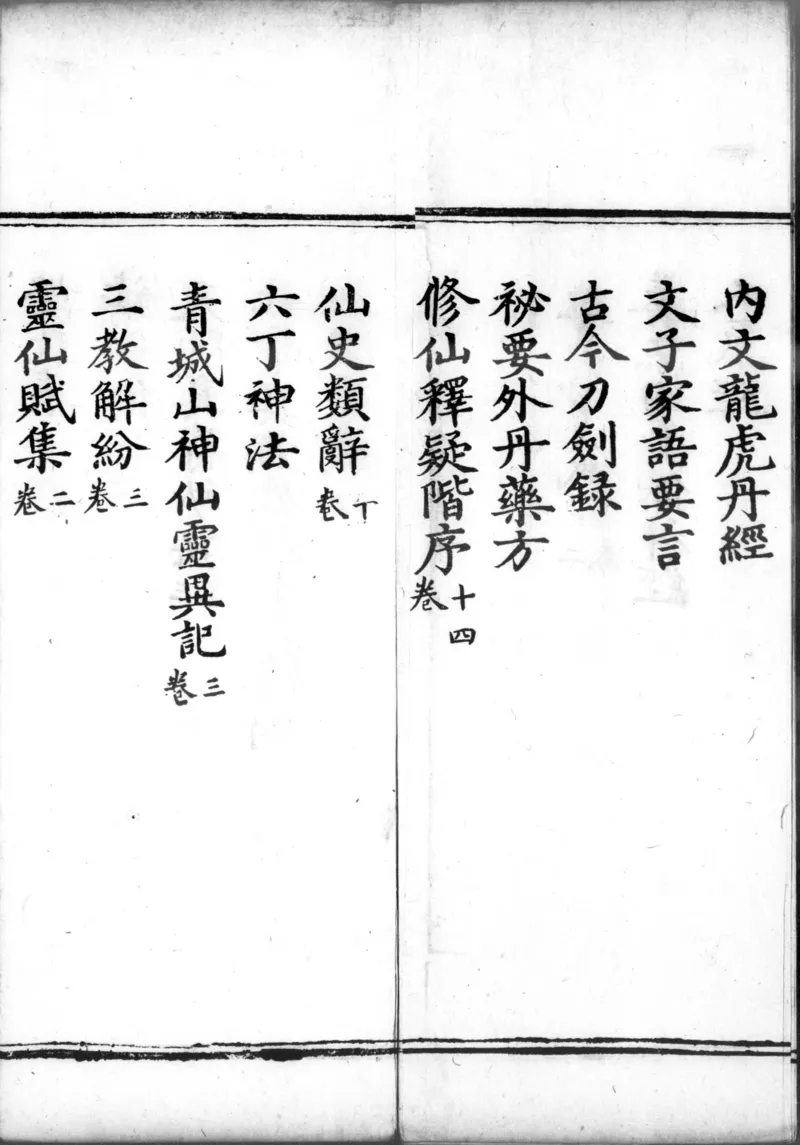 內文龍虎丹經
文子家語要言
古今刀劍録
祕要外丹藥方
修仙釋疑階序十四卷
仙史類辭丅卷
六丁神法
青城山神仙靈異記三卷
三教解紛三卷
靈仙賦集二卷